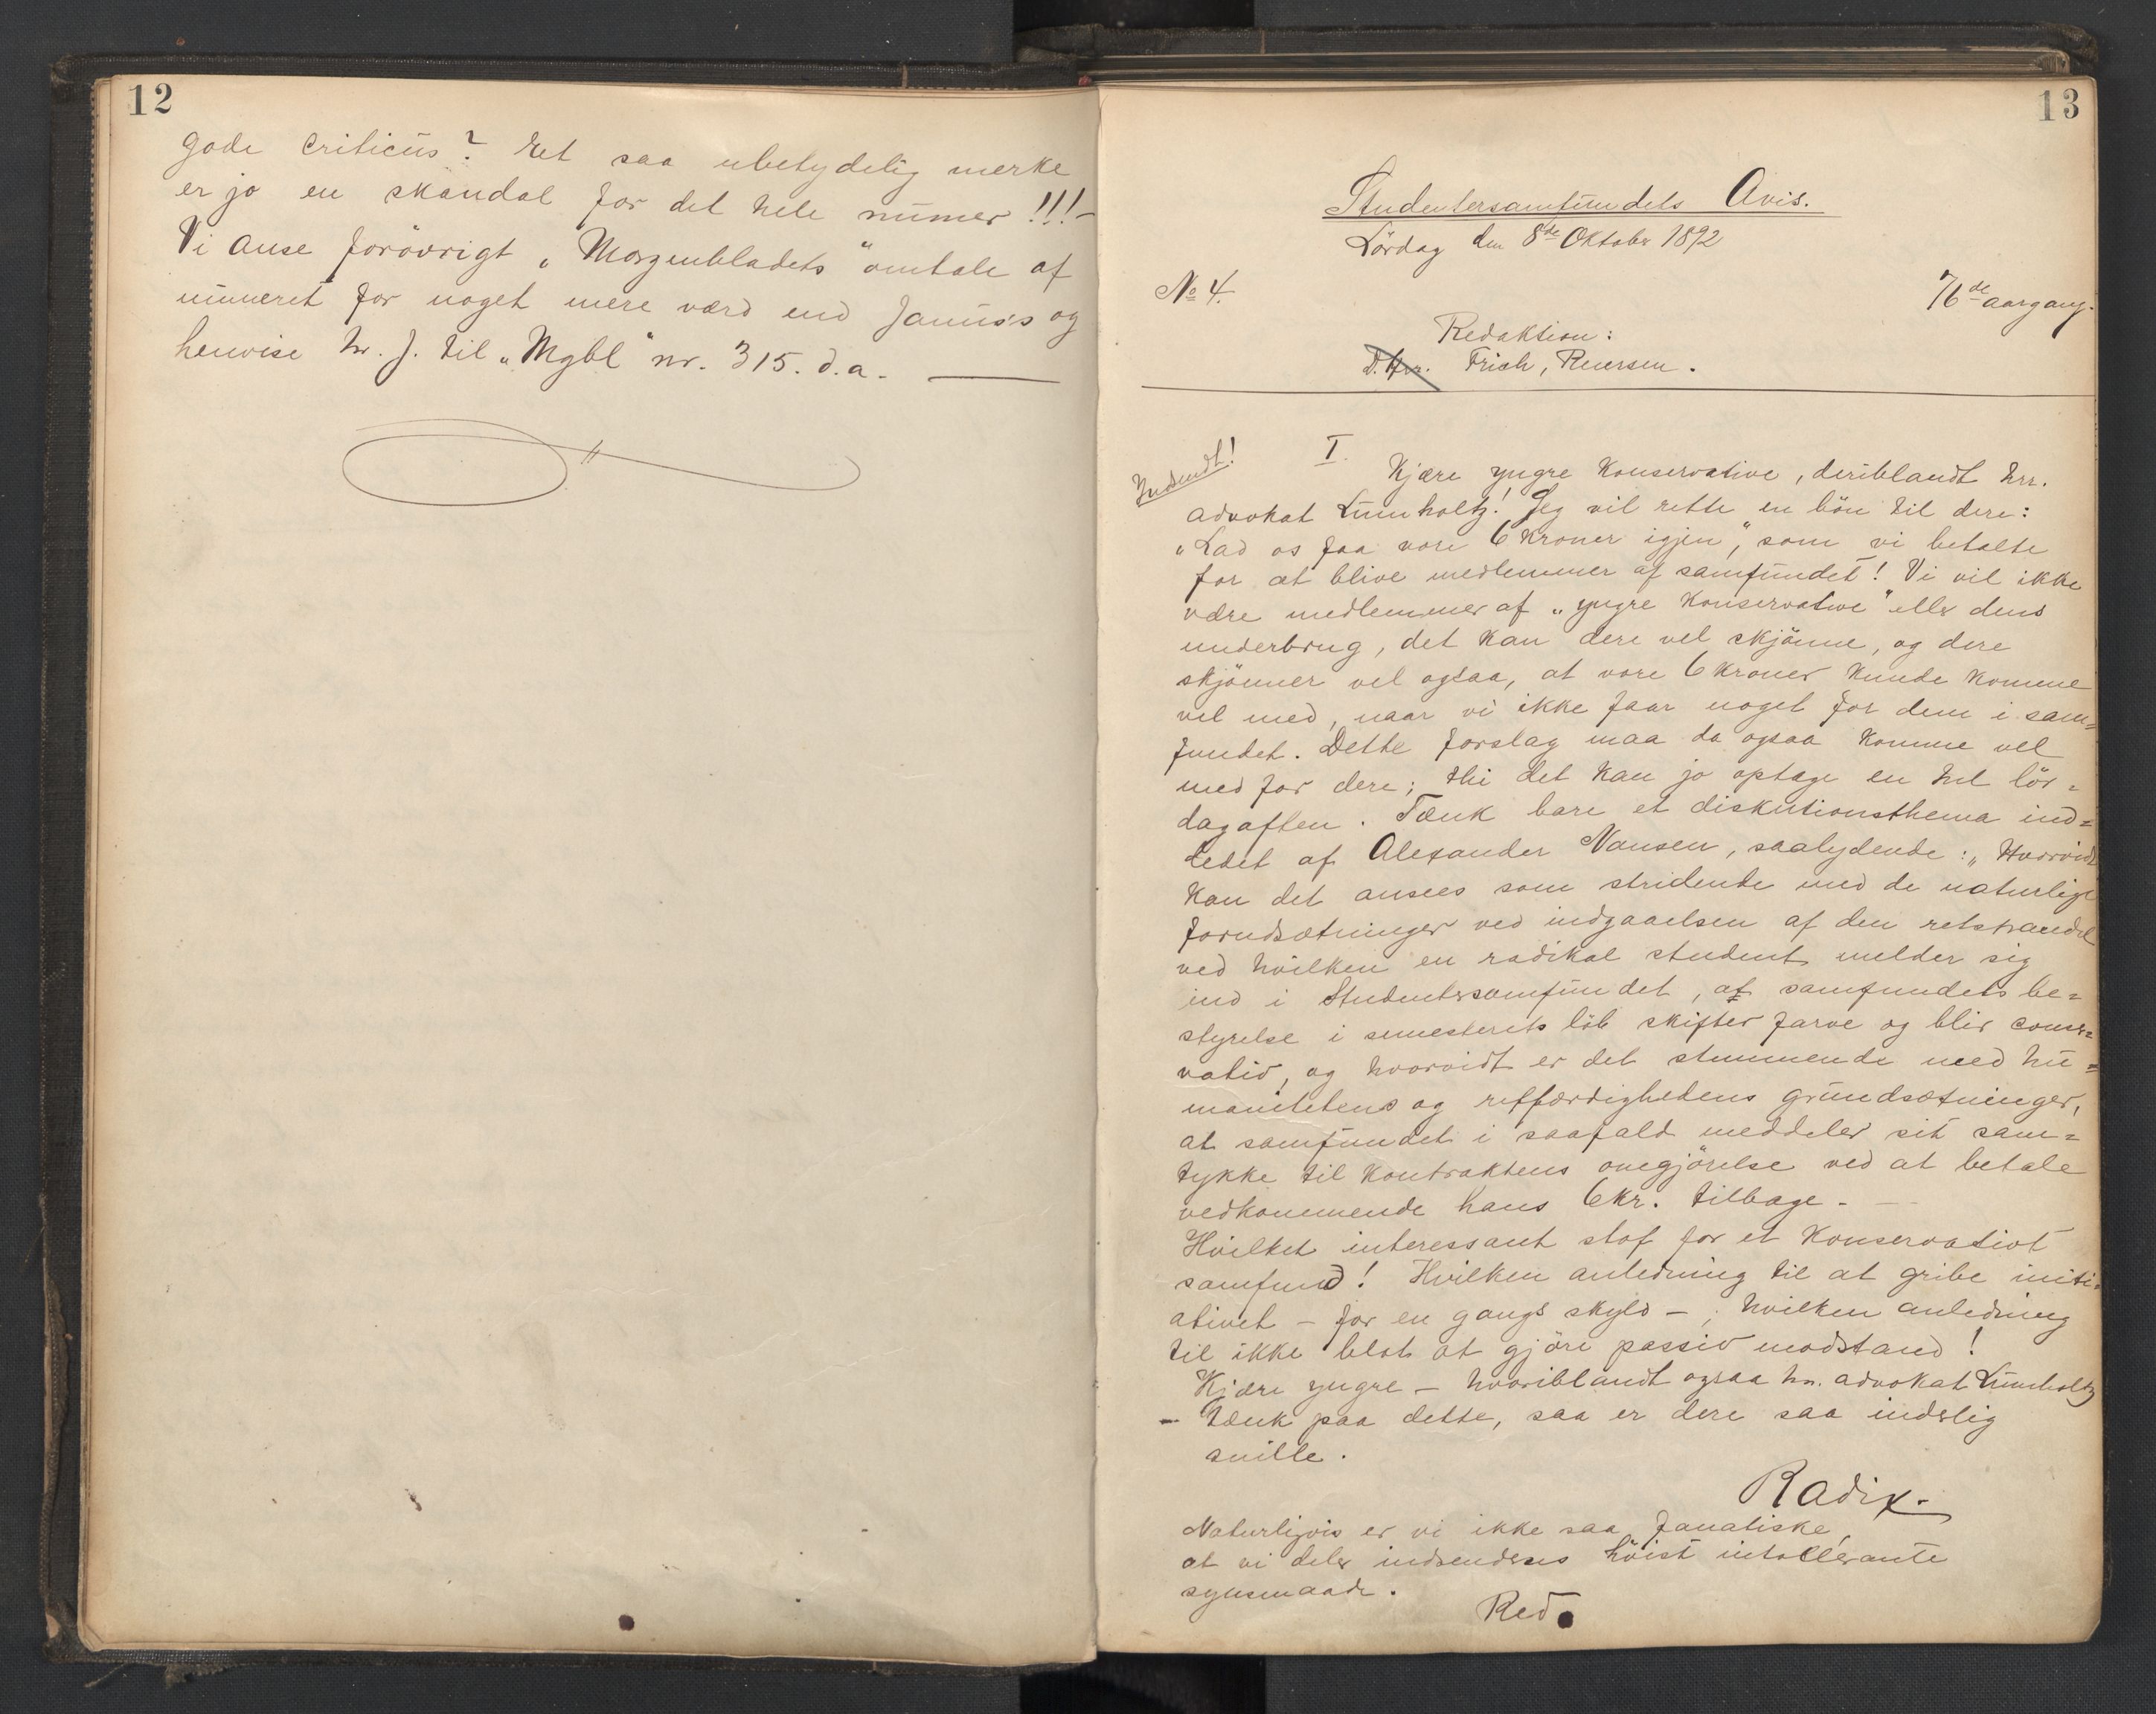 12
gode criticus? Et saa ubetydelig merke
er jo en skandal for det hele numer!!!–
Vi anse forövrigt „Morgenbladets“ omtale af
numeret for noget mere værd end Janus's og
henvise hr. J. til „Mgbl“ nr. 315. d.a. —
13
Studentersamfundets Avis.
Lördag den 8de Oktober 1892
No 4. 76de aargang.
Redaktion:
D.Hrr. Frich, Reuersen.
Indsendt!
I.
Kjære yngre Konservative, deriblandt hrr.
advokat Lumholtz! Jeg vil rette en bön til dere:
„Lad os faa vore 6 Kroner igjen“, som vi betalte
for at blive medlemmer af samfundet! Vi vil ikke
være medlemmer af „yngre Konservative“ eller dens
underbrug, det kan dere vel skjönne, og dere
skjönner vel ogsaa, at vore 6 kroner kunde komme
vel med, naar vi ikke faar noget for dem i sam=
fundet. Dette forslag maa da ogsaa komme vel
med for dere; thi det kan jo optage en hel lör=
dagaften. Tænk bare et diskutionsthema ind=
ledet af Alexander Nansen, saalydende: „Hvorvidt
kan det ansees som stridende med de naturlige
forudsætninger ved indgaaelsen af den retshandel
ved hvilken en radikal student melder sig
ind i Studentersamfundet, at samfundets be=
styrelse i semesterets löb skifter farve og blir conser=
vativ, og hvorvidt er det stemmende med hu=
manitetens og retfærdighedens grundsætninger,
at samfundet i saafald meddeler sit sam=
tykke til kontraktens omgjörelse ved at betale
vedkommende hans 6 kr. tilbage. —
Hvilket interessant stof for et Konservativt
samfund! Hvilken anledning til at gribe initi=
ativet – for en gangs skyld –; hvilken anledning
til ikke blot at gjöre passiv modstand!
Kjære yngre – hvoriblandt ogsaa hr. advokat Lumholtz
– tænk paa dette, saa er dere saa inderlig
snille.
Radix.
Naturligvis er vi ikke saa fanatiske,
at vi deler indsenderens höist intollerante
synsmaade.
Red.